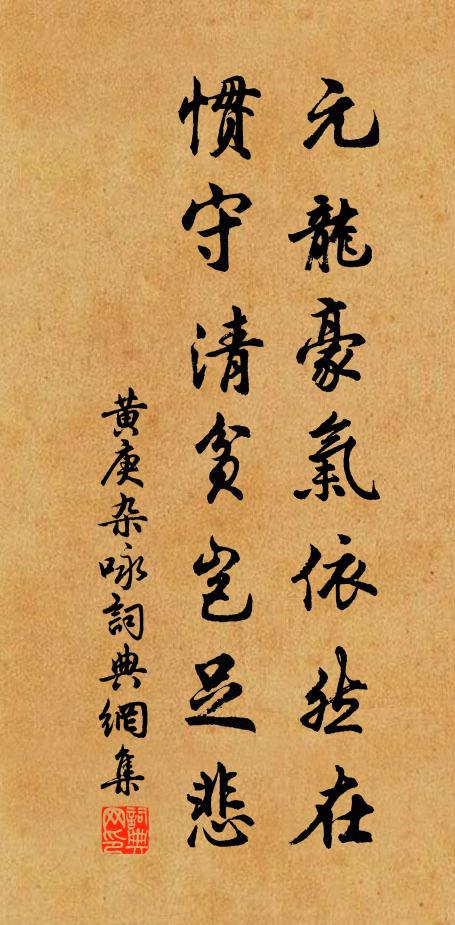 元龍豪氣依然在
慣守清貧豈足悲
黃庚杂咏詞典網集
詞典网印